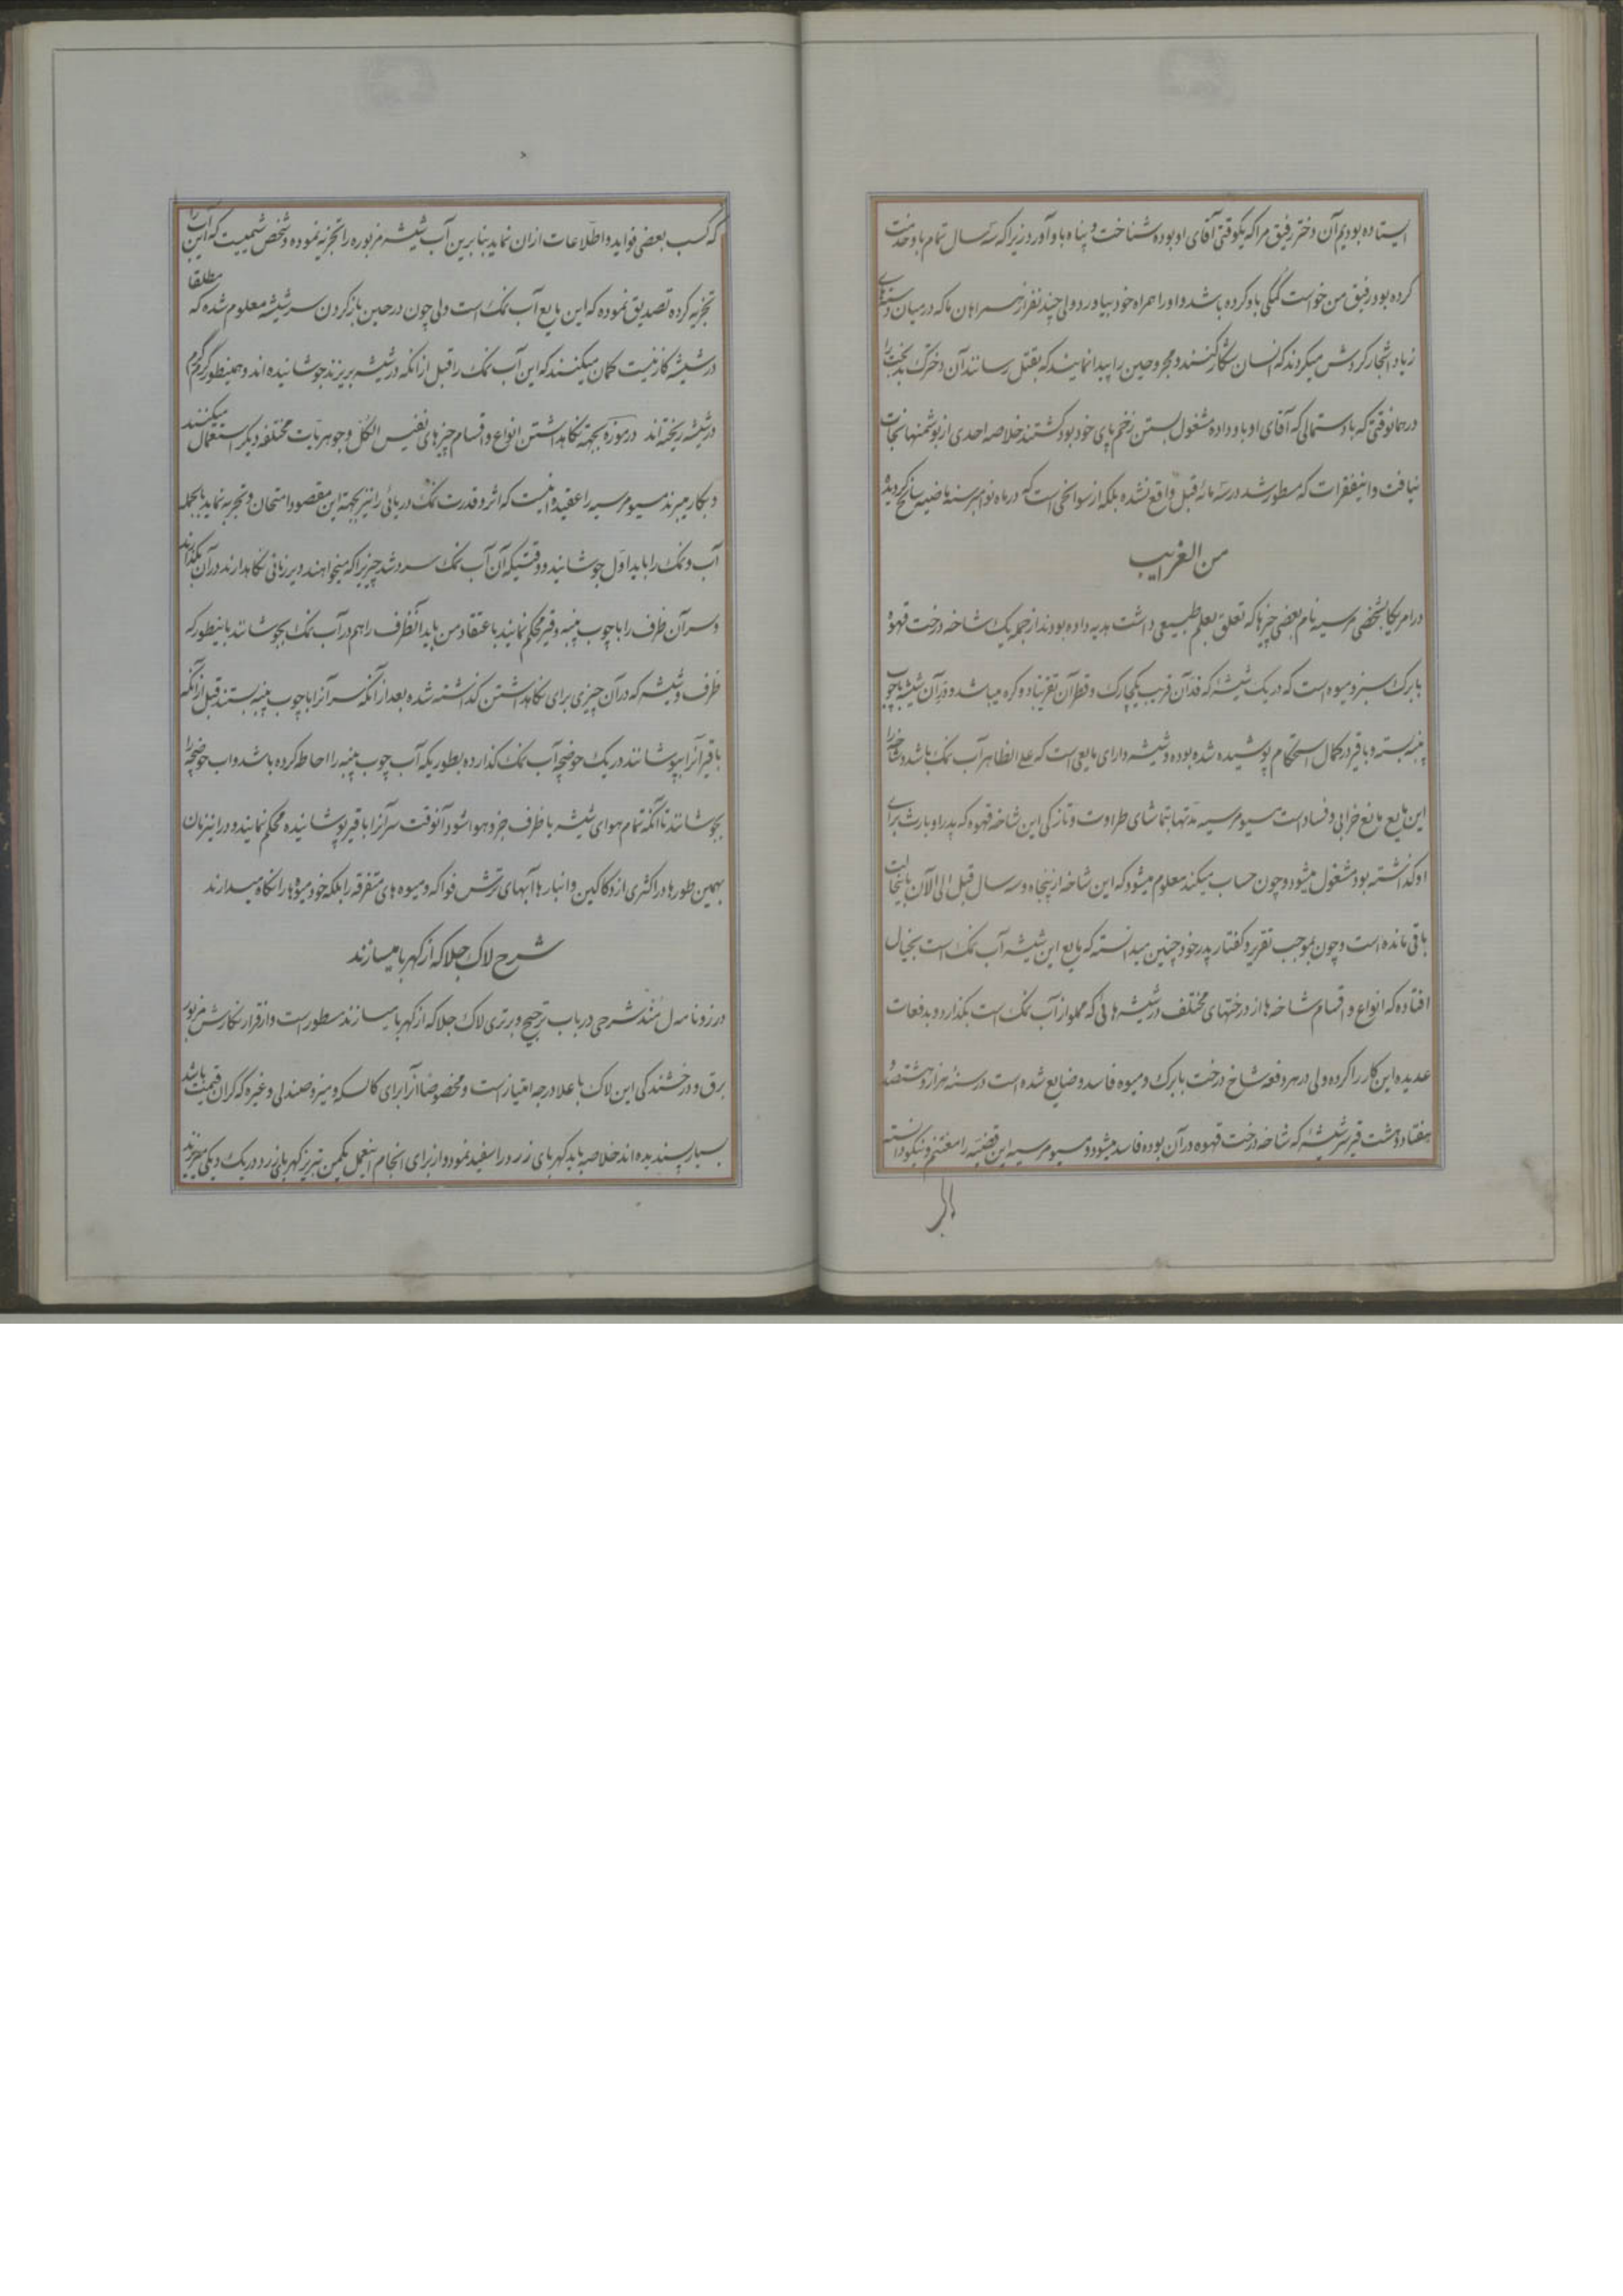 ایستاده بودیم آن دختر رفیق مرا که یکوقتی آقای او بوده شناخت و پناه باو آورد زیرا که سه سال تمام باو خدمت
کرده بود رفیق من خواست کمکی باو کرده باشد و او را همراه خود بیاورد ولی چند نفر از همراهان ما که در میان
زیاد اشجار گردش میکردند که انسان شکار کنند و مجروحین را پیدا نمایند که بقتل رسانند آن دخترک بدبخت را
در همانوقتی که با دستمالی که آقای او باو داده مشغول بستن زخم پای خود بود کشتند خلاصه احدی از بوشمنها نجات
نیافت و اینفقرات که مسطور شد در سه مائه قبل واقع نشده بلکه از سوانحی است که در ماه نوامبر سنه ماضیه سانح گردیده
من الغرایب
در امریکا بشخصی مرسیه نام بعضی چیزها که تعلق بعلم طبیعی داشت هدیه داده بودند از جمله یک شاخه درخت قهوه
با برک سبز و میوه است که در یک شیشه که قد آن قریب یکچارک و قطر آن تقریبا دو کره میباشد و در آن شیشه با چوب
پنبه بسته و با قیر در کمال استحکام پوشیده شده بوده و شیشه دارای مایعی است که علی الظاهر آب نمک باشد و شاخه را
این مایع مانع خرابی و فساد است مسیو مرسیه مدتها بتماشای طراوت و تازکی این شاخه قهوه که پدر او بارث برای
او کذاشته بود مشغول میشود و چون حساب میکند معلوم میشود که این شاخه از پنجاه و سه سال قبل الی الآن باینحالت
باقی مانده است و چون بموجب تقریر و کفتار پدر خود چنین میدانسته که مایع این شیشه آب نمک است بخیال
افتاده که انواع و اقسام شاخه ها از درختهای مختلف در شیشه هائی که مملو از آب نمک است بکذارد و بدفعات
عدیده این کار را کرده ولی در هر دفعه شاخ درخت با برک و میوه فاسد و ضایع شده است در سنه هزار و هشتصد و
هفتاد و هشت قیر سر شیشه که شاخه درخت قهوه در آن بوده فاسد میشود و مسیو مرسیه این قضیه را مغتنم و نیکو دانسته
که کسب بعضی فواید و اطلاعات از ان نماید بنابرین آب شیشه مزبوره را تجزیه نموده و شخص شیمیست که این آب را
تجزیه کرده تصدیق نموده که این مایع آب نمک است ولی چون در حین باز کردن سر شیشه معلوم شده که مطلقا
در شیشه کاز نیست کمان میکنند که این آب نمک را قبل از آنکه در شیشه بریزند جوشانیده اند و همینطور کرم کرم
در شیشه ریخته اند در موزه بجهة نکاهداشتن انواع و اقسام چیزهای نفیس الکل و جوهریات مختلفه دیکر استعمال میکنند
و بکار میبرند مسیو مرسیه را عقیده اینست که اثر و قدرت نمک دریائی را نیز بجهة این مقصود امتحان و تجربه نماید بالجمله
آب و نمک را باید اول جوشانید و وقتیکه آن آب نمک سرد شد چیزیرا که میخواهند دیر زمانی نکاهدارند در آن بکذارند
و سر آن ظرف را با چوب پنبه و قیر محکم نمایند باعتقاد من باید آنظرف را هم در آب نمک بجوشانند باینطور که
ظرف و شیشه که در آن چیزی برای نکاهداشتن کذاشته شده بعد از آنکه سر آنرا با چوب پنبه بستند قبل از آنکه
با قیر آنرا بپوشانند در یک حوضچه آب نمک کذارده بطوریکه آب چوب پنبه را احاطه کرده باشد و اب حوضچه را
بجوشانند تا آنکه تمام هوای شیشه یا ظرف جزو هوا شود آنوقت سر آنرا با قیر پوشانیده محکم نمایند و در اینزمان
بهمین طورها در اکثری از دکاکین و انبارها آبهای ترش فواکه و میوه های متفرقه را بلکه خود میوها را نکاه میدارند
شرح لاک جلا که از کهربا میسازند
در روزنامه ل مند شرحی در باب ترجیح و برتری لاک جلا که از کهربا میسازند مسطور است و از قرار نکارش مزبور
برق و درخشندکی این لاک باعلا درجه امتیاز است و مخصوصا آنرا برای کالسکه و میز و صندلی و غیره که کران قیمت باشد
بسیار پسندیده اند خلاصه باید کهربای زرد را سفید نمود و از برای انجام اینعمل یکمن تبریز کهربای زرد در یک دیکی میریزند